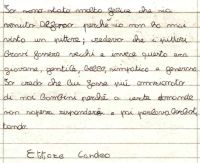 Io sono stato molto felice che sia
venuto perché io non ho mai
visto un pittore, credevo che i pittori
fossero vecchi e invece questo era
giovane, gentile, bello, simpatico e generoso
Io credo che lui fosse più emozionato
di noi bambini perché a certe domande
non sapeva rispondere e poi parlava
tando.
Ettore